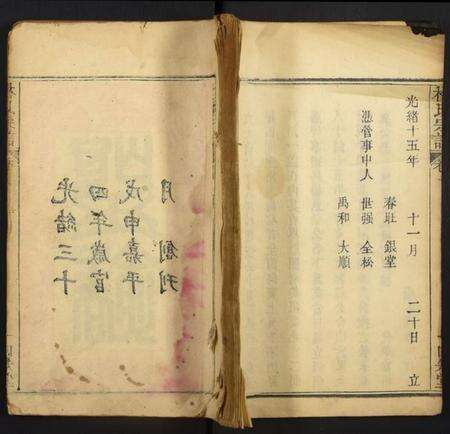 光緒十五年 十一月 二十日 立
春班 銀堂
憑管事中人 世强 全松
禹和 大順
光緒三十
四年歲官
戊申嘉平
月 創刊